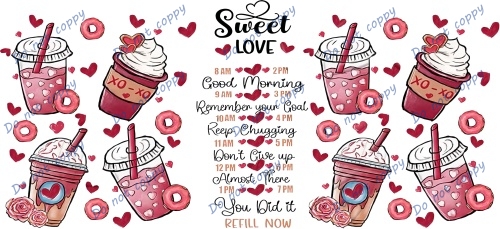 Sweet
LOVE
8 AM 2 PM
Good Morning
9 AM 3 PM
Remember your Goal
10 AM 4 PM
Keep Chugging
11 AM 5 PM
Don't Give up
12 PM 6 PM
Almost There
1 PM 7 PM
You Did it
REFILL NOW
XO - XO
XO - XO
Do not coppy
Do not coppy
Do not coppy
Do not coppy
Do not coppy
Do not coppy